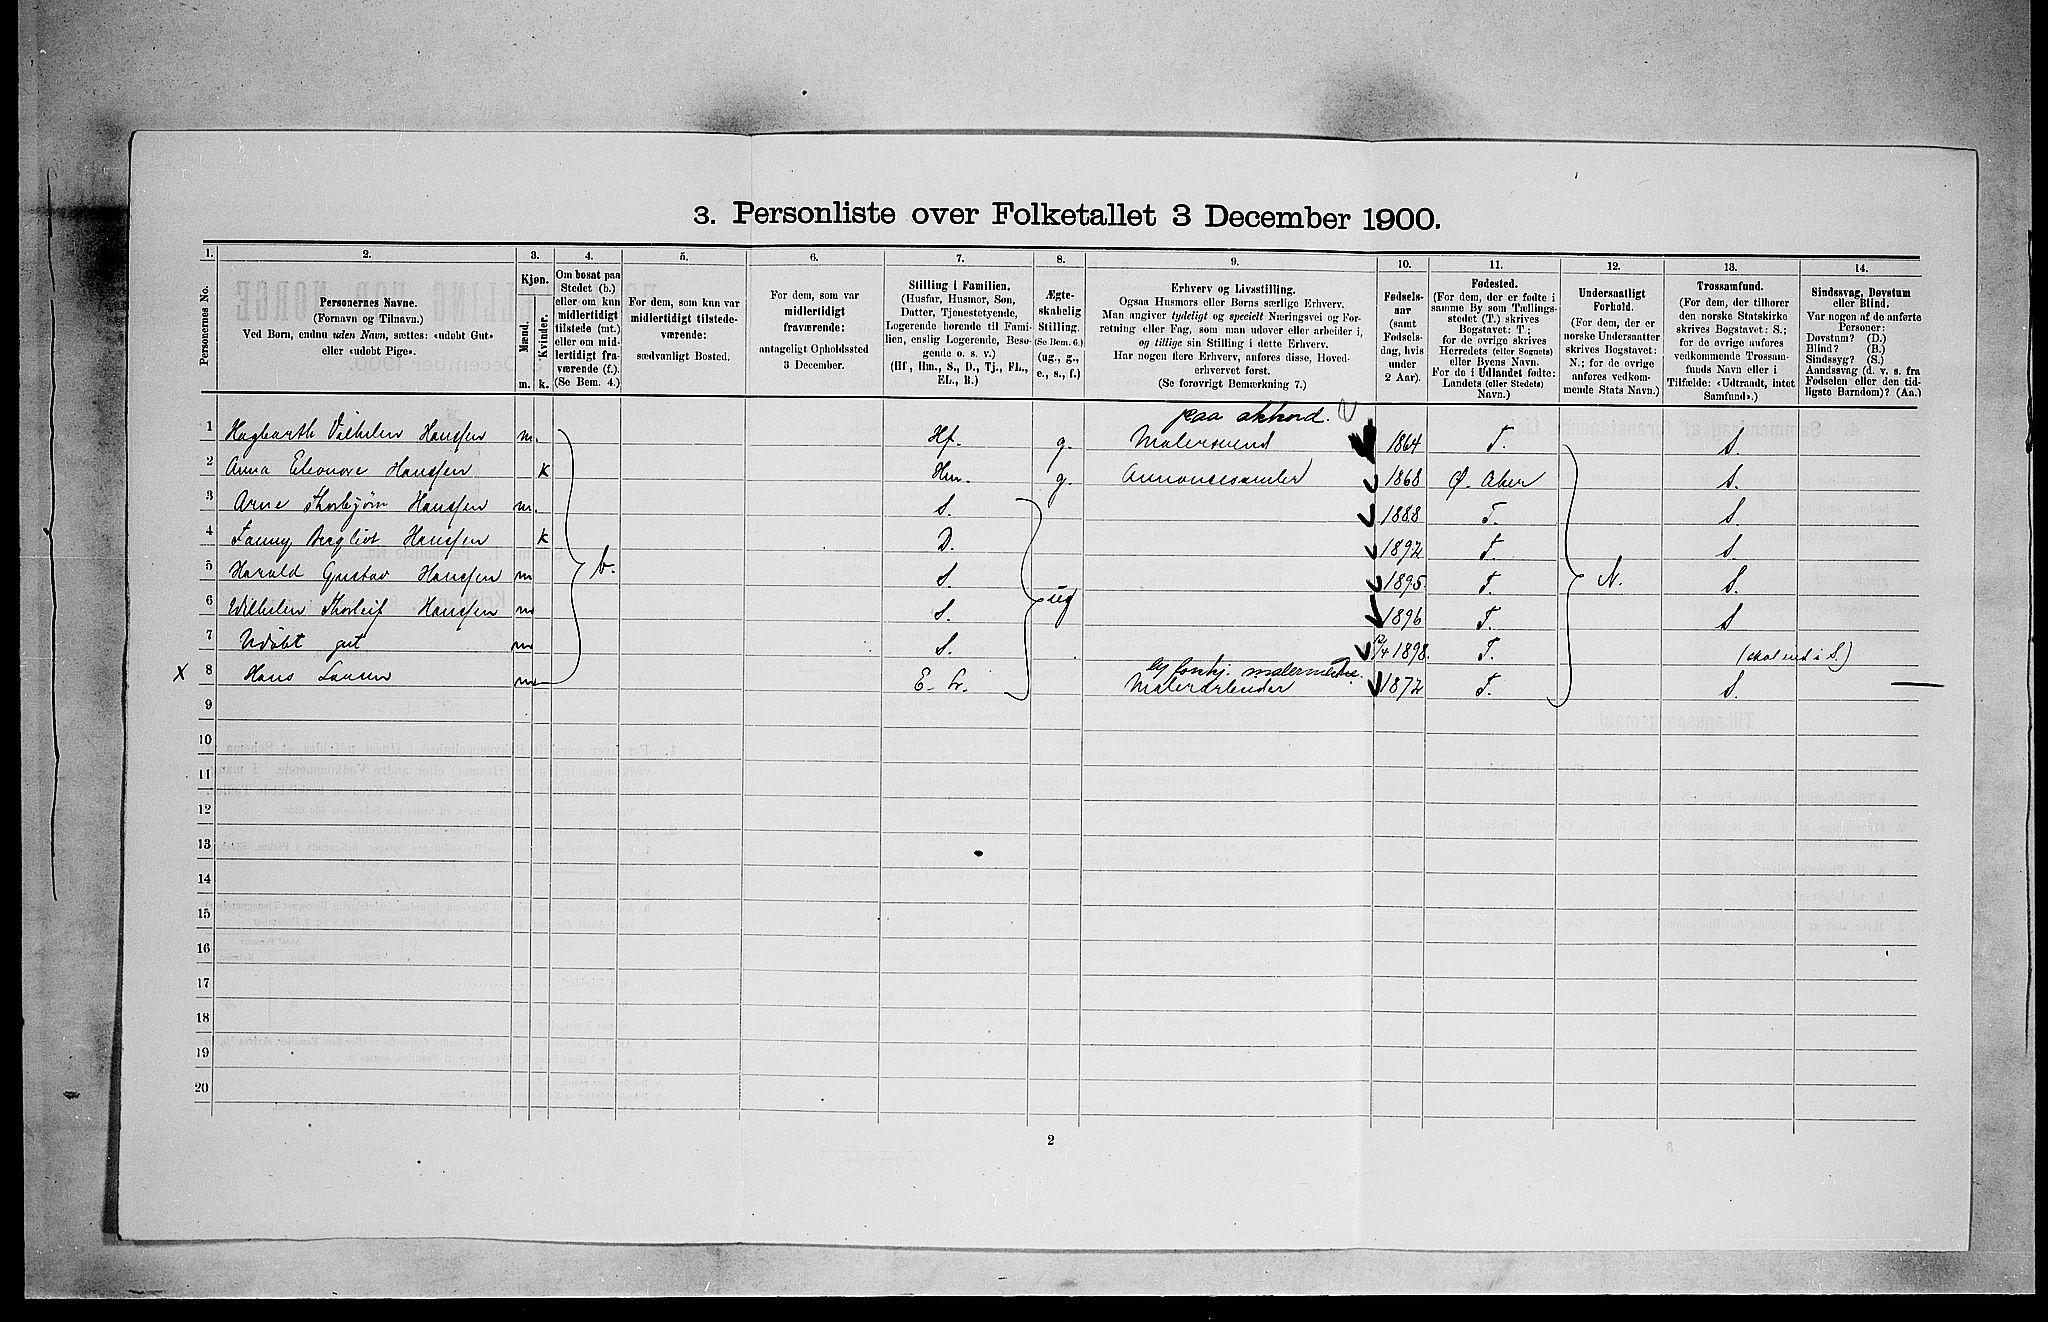 3. Personliste over Folketallet 3 December 1900.
1. 2. 3. 4. 5. 6. 7. 8. 9. 10. 11. 12. 13. 14.
Personernes No.
Personernes Navne.
(Fornavn og Tilnavn.)
Ved Børn, endnu uden Navn, sættes: «udøbt Gut»
eller «udøbt Pige».
Kjøn.
Mænd.
Kvinder.
m. k.
Om bosat paa
Stedet (b.)
eller om kun
midlertidigt
tilstede (mt.)
eller om mid-
lertidigt fra-
værende (f.).
(Se Bem. 4.)
For dem, som kun var
midlertidigt tilstede-
værende:
sædvanligt Bosted.
For dem, som var
midlertidigt
fraværende:
antageligt Opholdssted
3 December.
Stilling i Familien.
(Husfar, Husmor, Søn,
Datter, Tjenestetyende,
Logerende hørende til Fami-
lien, enslig Logerende, Besø-
gende o. s. v.)
(Hf, Hm., S., D., Tj., FL.,
EL., B.)
Ægte-
skabelig
Stilling.
(Se Bem. 6.)
(ug., g.,
e., s., f.)
Erhverv og Livsstilling.
Ogsaa Husmors eller Børns særlige Erhverv.
Man angiver tydeligt og specielt Næringsvei og For-
retning eller Fag, som man udøver eller arbeider i,
og tillige sin Stilling i dette Erhverv.
Har nogen flere Erhverv, anføres disse, Hoved-
erhvervet først.
(Se forøvrigt Bemærkning 7.)
Fødsels-
aar
(samt
Fødsels-
dag, hvis
under
2 Aar).
Fødested.
(For dem, der er fødte i
samme By som Tællings-
stedet (T.) skrives
Bogstavet: T.;
for de øvrige skrives
Herredets (eller Sognets)
eller Byens Navn.
For de i Udlandet fødte:
Landets (eller Stedets)
Navn.)
Undersaatligt
Forhold.
(For dem, der er
norske Undersaatter
skrives Bogstavet:
N.; for de øvrige
anføres vedkom-
mende Stats Navn.)
Trossamfund.
(For dem, der tilhører
den norske Statskirke
skrives Bogstavet: S.;
for de øvrige anføres
vedkommende Trossam-
funds Navn eller i
Tilfælde: «Udtraadt, intet
Samfund».)
Sindssvag, Døvstum
eller Blind.
Var nogen af de anførte
Personer:
Døvstum? (D.)
Blind? (B.)
Sindssyg? (S.)
Aandssvag (d. v. s. fra
Fødselen eller den tid-
ligste Barndom)? (Aa.)
paa akkord.
1 Hagbarth Vilhelm Hanssen m. Hf. g. Malersvend 1864 T. S.
2 Anna Eleonore Hanssen k Hm. g. Annoncesamler 1868 Ø. Aker S.
3 Arne Thorbjørn Hanssen m. S. 1888 T. S.
4 Fanny Bergliot Hanssen k D. 1892 T. S.
5 Harald Gustav Hanssen m b. S. 1895 T. N. S.
6 Wilhelm Thorleif Hanssen m S. ug 1896 T. S
7 Udøbt gut m S. 12/4 1898. T. (skal ind i S.)
X 8 Hans m E. L. 1872 T. S.
9
10
11
12
13
14
15
16
17
18
19
20
2